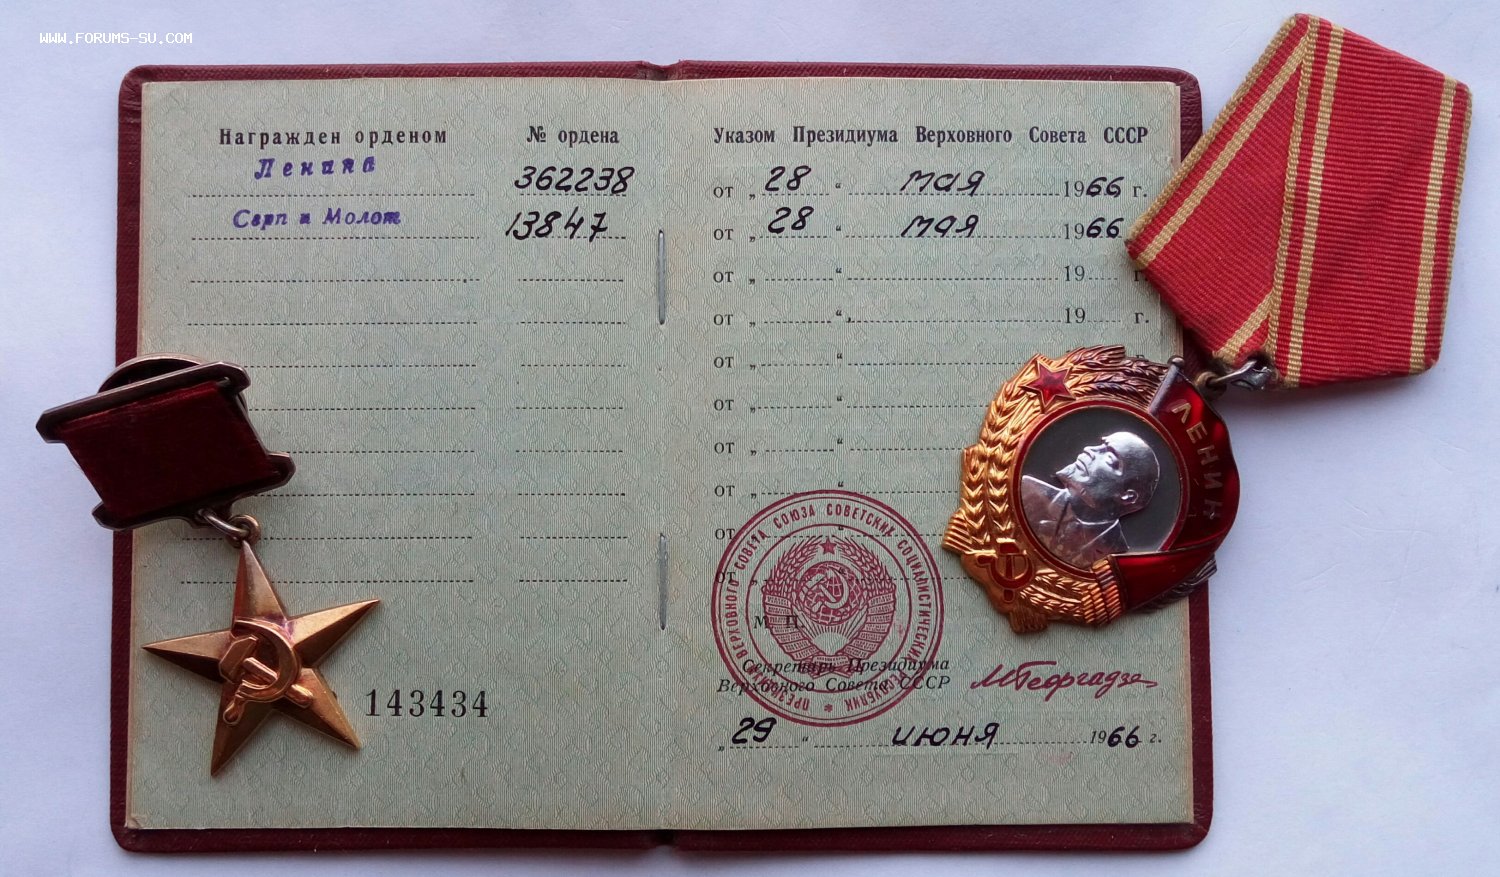 WWW.FORUMS-SU.COM
Награжден орденом № ордена Указом Президиума Верховного Совета СССР
Ленина 362238 от „ 28 “ мая 1966 г.
Серп и Молот 13847 от „ 28 “ мая 1966
от „ “ 19 г.
от „ “ 19 г.
от „ “
от „ “
от „ “
от „ “
от “
от „
ПРЕЗИДИУМ ВЕРХОВНОГО СОВЕТА СОЮЗА СОВЕТСКИХ СОЦИАЛИСТИЧЕСКИХ РЕСПУБЛИК
М. П.
Секретарь Президиума
Верховного Совета СССР МГеоргадзе
„ 29 “ июня 1966 г.
143434
ЛЕНИН